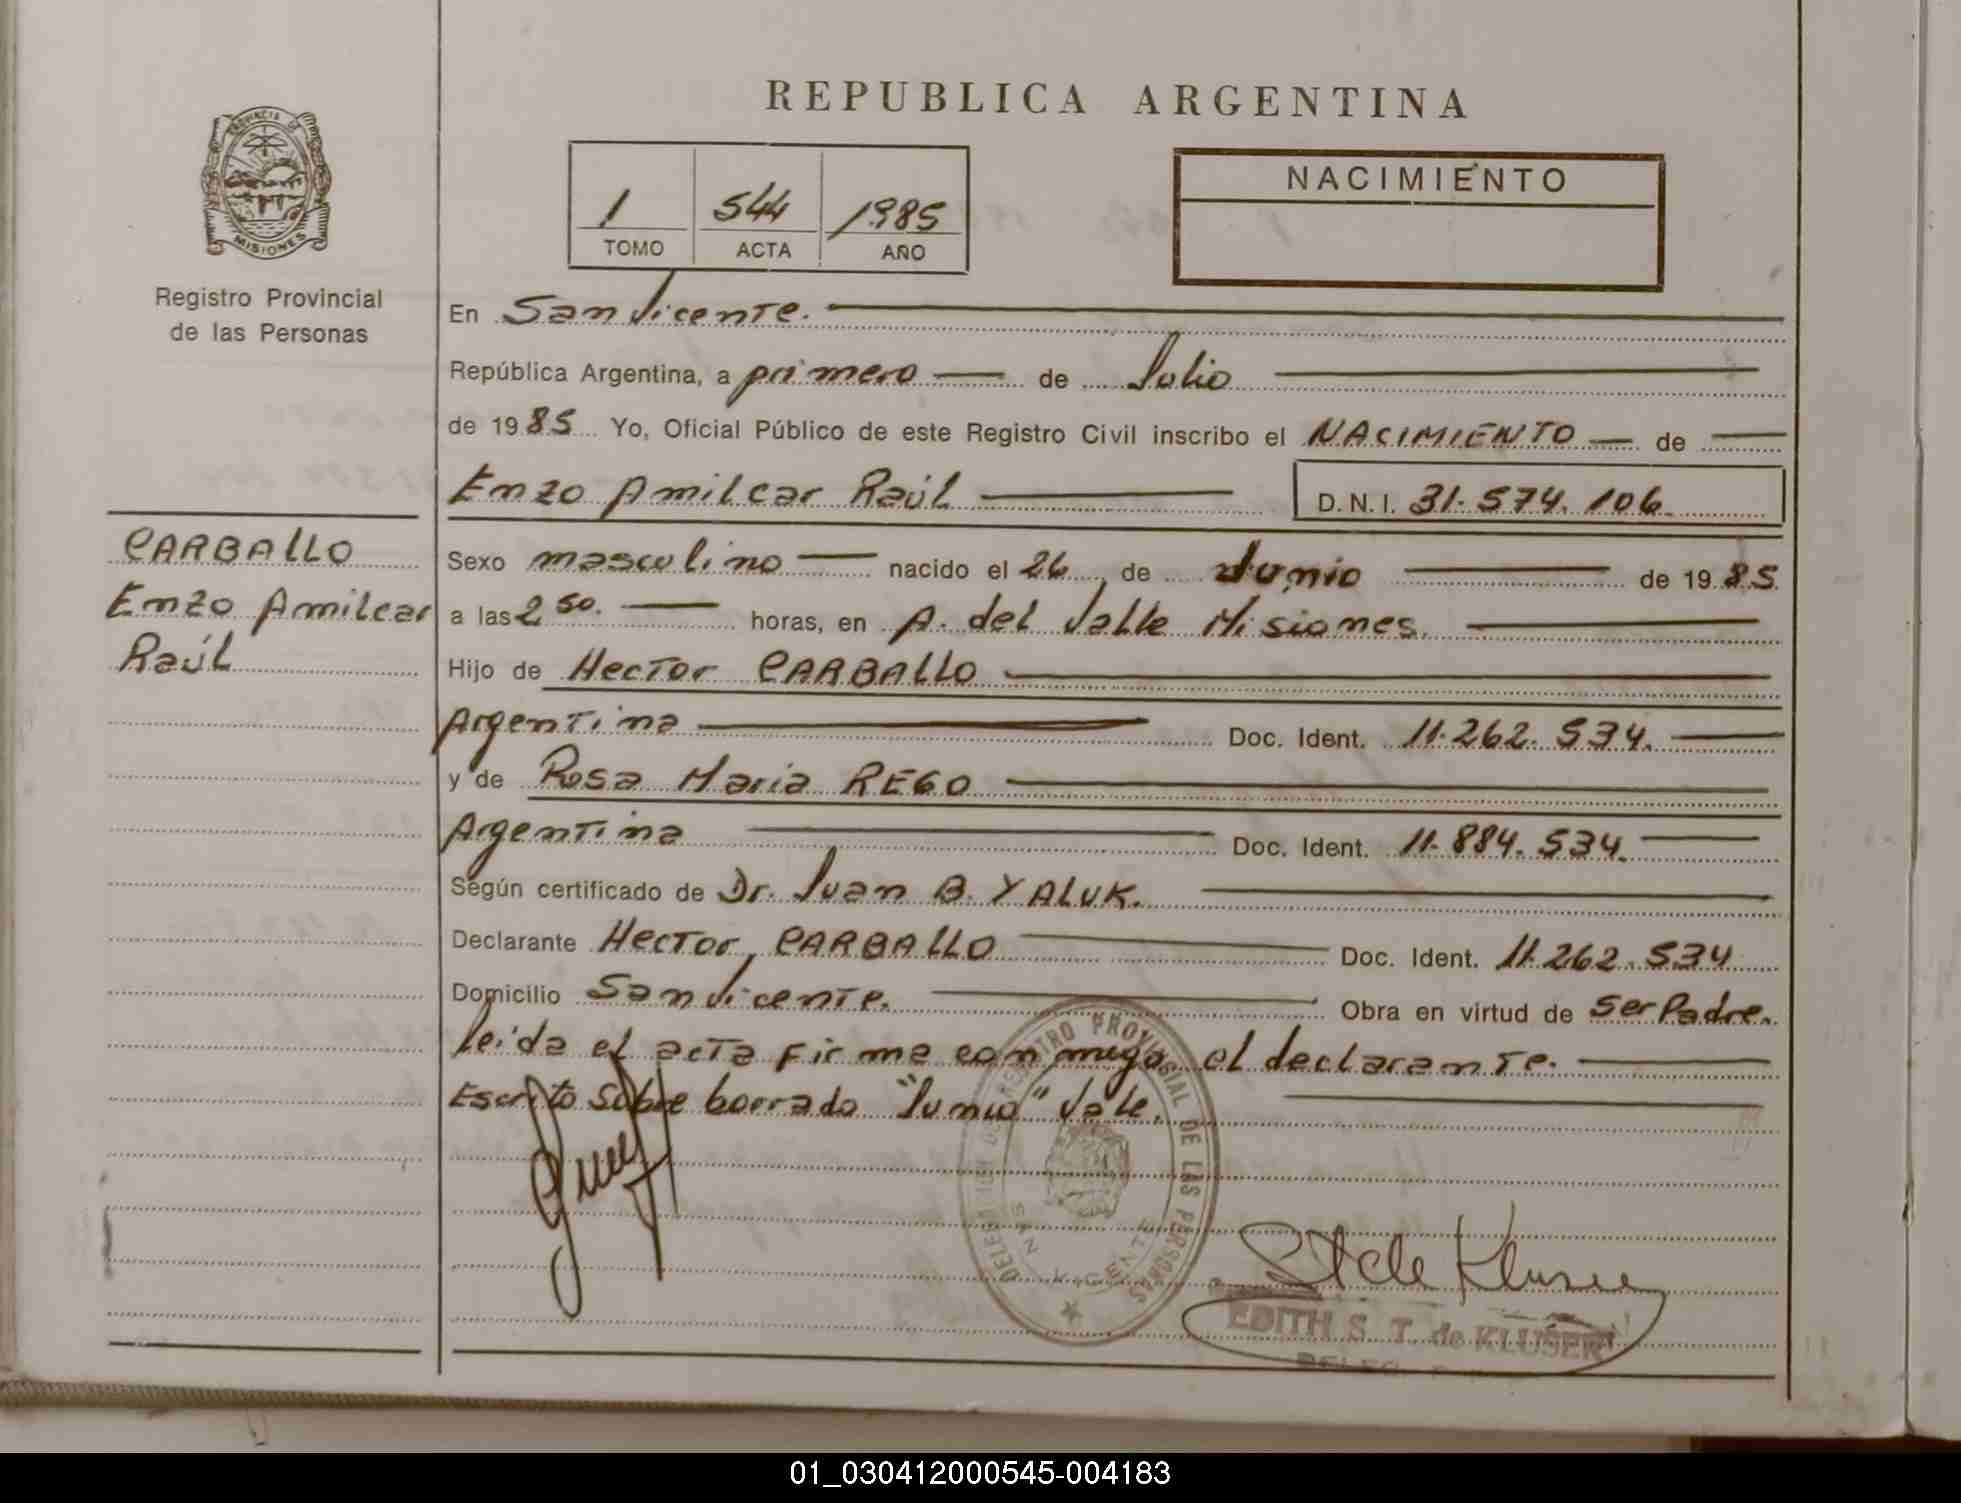 REPUBLICA ARGENTINA
PROVINCIA DE
MISIONES
Registro Provincial
de las Personas
1 544 1985
TOMO ACTA AÑO
NACIMIENTO
En San Vicente.
República Argentina, a primero de Julio
de 1985 Yo, Oficial Público de este Registro Civil inscribo el NACIMIENTO de
Enzo Amilcar Raúl D.N.I. 31.574.106.
CARBALLO
Enzo Amilcar
Raúl
Sexo masculino nacido el 26 de Junio de 1985.
a las 2 50. horas, en A. del Valle Misiones.
Hijo de Hector CARBALLO
Argentina Doc. Ident. 11.262.534.
y de Rosa Maria REGO
Argentina Doc. Ident. 11.884.534.
Según certificado de Dr. Juan B. YALUK.
Declarante Hector CARBALLO Doc. Ident. 11.262.534
Domicilio San Vicente. Obra en virtud de ser Padre.
Leida el acta firma conmigo el declarante.
Escrito sobre borrado "Junio" Vale.
DELEGACION DEL REGISTRO PROVINCIAL DE LAS PERSONAS
SAN VICENTE
EDITH S. T. de KLUSER
01_030412000545-004183